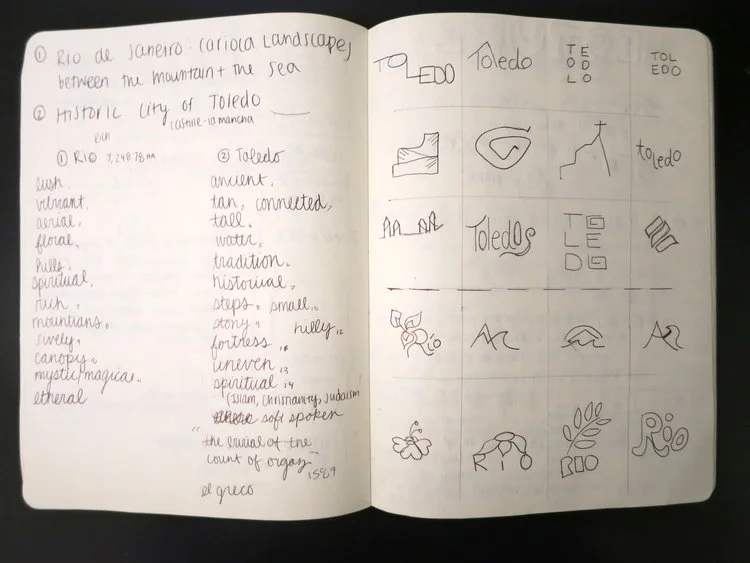 ① Rio de Janeiro: Carioca Landscapes
between the mountain + the sea
② Historic City of Toledo
castille-la mancha
① Rio 7,248.78 HA
② Toledo
lush,
vibrant,
aerial,
floral,
hills,
spiritual,
rich,
mountians,
lively,
canopy,
mystic/magical,
etheral
ancient,
tan, connected,
tall,
water,
tradition,
historical,
steps, small,
stony, hilly,
fortress,
uneven,
spiritual,
(Islam, Christianity, Judaism
soft spoken
"the burial of the
count of orgaz"
1589
el greco
TOLEDO
Toledo
TE
OD
LO
TOL
EDO
toledo
Toledos
TO
LE
DO
Rio
RIO
RIO
Rio